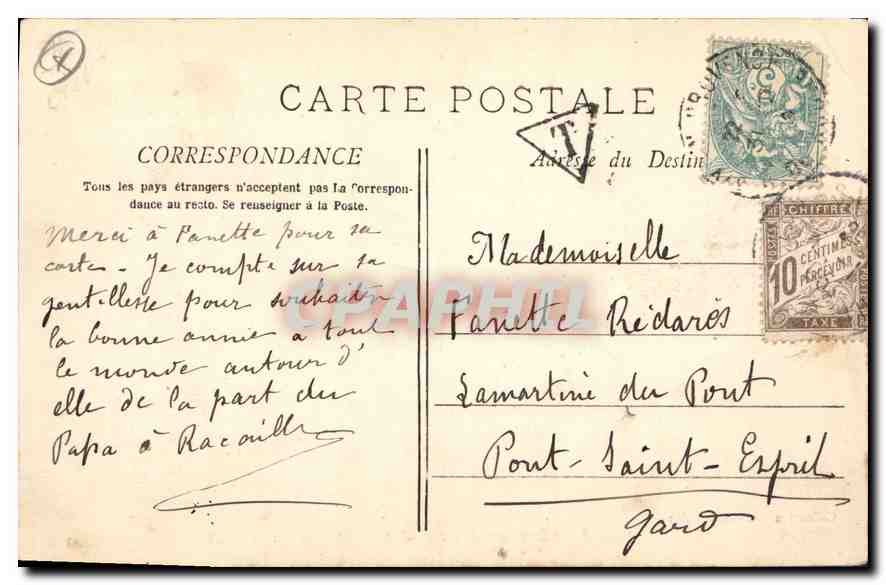 CARTE POSTALE
T
CORRESPONDANCE
Adresse du Destin
Tous les pays étrangers n'acceptent pas la Correspon-
dance au recto. Se renseigner à la Poste.
Merci à Fanette pour sa
carte - Je compte sur sa
gentillesse pour souhaiter
la bonne année à tout
le monde autour d'
elle de la part du
Papa à Racaille
Mademoiselle
Fanette Rédarès
Lamartine du Pont
Pont-Saint-Esprit
Gard
CHIFFRE
10 CENTIMES
À PERCEVOIR
TAXE
CPAPHIL